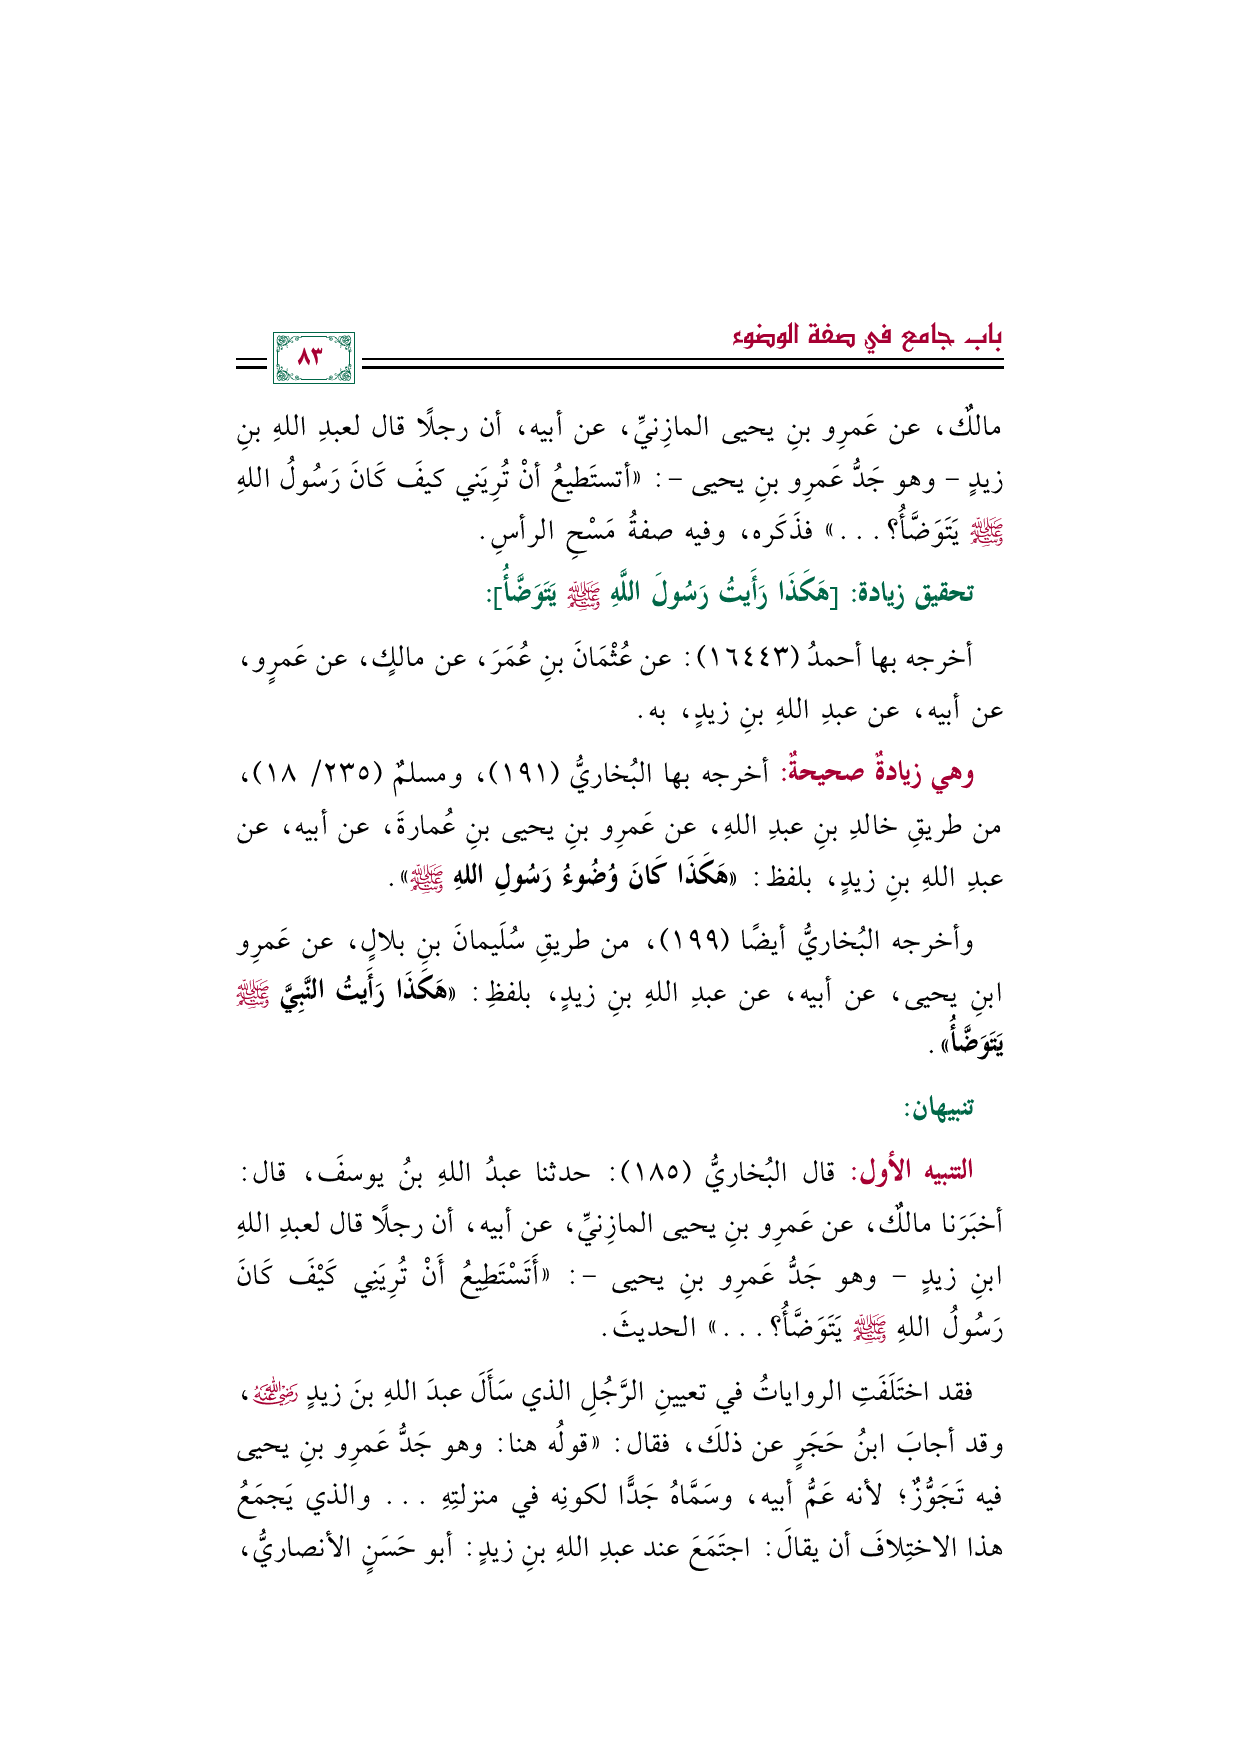 باب جامع في صفة الوضوء
٨٣
مالكٌ، عن عَمرِو بنِ يحيى المازِنيِّ، عن أبيه، أن رجلًا قال لعبدِ اللهِ بنِ
زيدٍ - وهو جَدُّ عَمرِو بنِ يحيى -: «أتستَطيعُ أنْ تُرِيَني كيفَ كَانَ رَسُولُ اللهِ
ﷺ يَتَوَضَّأُ؟...» فذَكَره، وفيه صفةُ مَسْحِ الرأسِ.
تحقيق زيادة: [هَكَذَا رَأَيتُ رَسُولَ اللَّهِ ﷺ يَتَوَضَّأُ]:
أخرجه بها أحمدُ (١٦٤٤٣): عن عُثْمَانَ بنِ عُمَرَ، عن مالكٍ، عن عَمرٍو،
عن أبيه، عن عبدِ اللهِ بنِ زيدٍ، به.
وهي زيادةٌ صحيحةٌ: أخرجه بها البُخاريُّ (١٩١)، ومسلمٌ (٢٣٥/ ١٨)،
من طريقِ خالدِ بنِ عبدِ اللهِ، عن عَمرِو بنِ يحيى بنِ عُمارةَ، عن أبيه، عن
عبدِ اللهِ بنِ زيدٍ، بلفظ: «هَكَذَا كَانَ وُضُوءُ رَسُولِ اللهِ ﷺ».
وأخرجه البُخاريُّ أيضًا (١٩٩)، من طريقِ سُلَيمانَ بنِ بلالٍ، عن عَمرِو
ابنِ يحيى، عن أبيه، عن عبدِ اللهِ بنِ زيدٍ، بلفظِ: «هَكَذَا رَأَيتُ النَّبِيَّ ﷺ
يَتَوَضَّأُ».
تنبيهان:
التنبيه الأول: قال البُخاريُّ (١٨٥): حدثنا عبدُ اللهِ بنُ يوسفَ، قال:
أخبَرَنا مالكٌ، عن عَمرِو بنِ يحيى المازِنيِّ، عن أبيه، أن رجلًا قال لعبدِ اللهِ
ابنِ زيدٍ - وهو جَدُّ عَمرِو بنِ يحيى -: «أَتَسْتَطِيعُ أَنْ تُرِيَنِي كَيْفَ كَانَ
رَسُولُ اللهِ ﷺ يَتَوَضَّأُ؟...» الحديثَ.
فقد اختَلَفَتِ الرواياتُ في تعيينِ الرَّجُلِ الذي سَأَلَ عبدَ اللهِ بنَ زيدٍ رضي الله عنه،
وقد أجابَ ابنُ حَجَرٍ عن ذلكَ، فقال: «قولُه هنا: وهو جَدُّ عَمرِو بنِ يحيى
فيه تَجَوُّزٌ؛ لأنه عَمُّ أبيه، وسَمَّاهُ جَدًّا لكونِه في منزلتِهِ ... والذي يَجمَعُ
هذا الاختِلافَ أن يقالَ: اجتَمَعَ عند عبدِ اللهِ بنِ زيدٍ: أبو حَسَنٍ الأنصاريُّ،